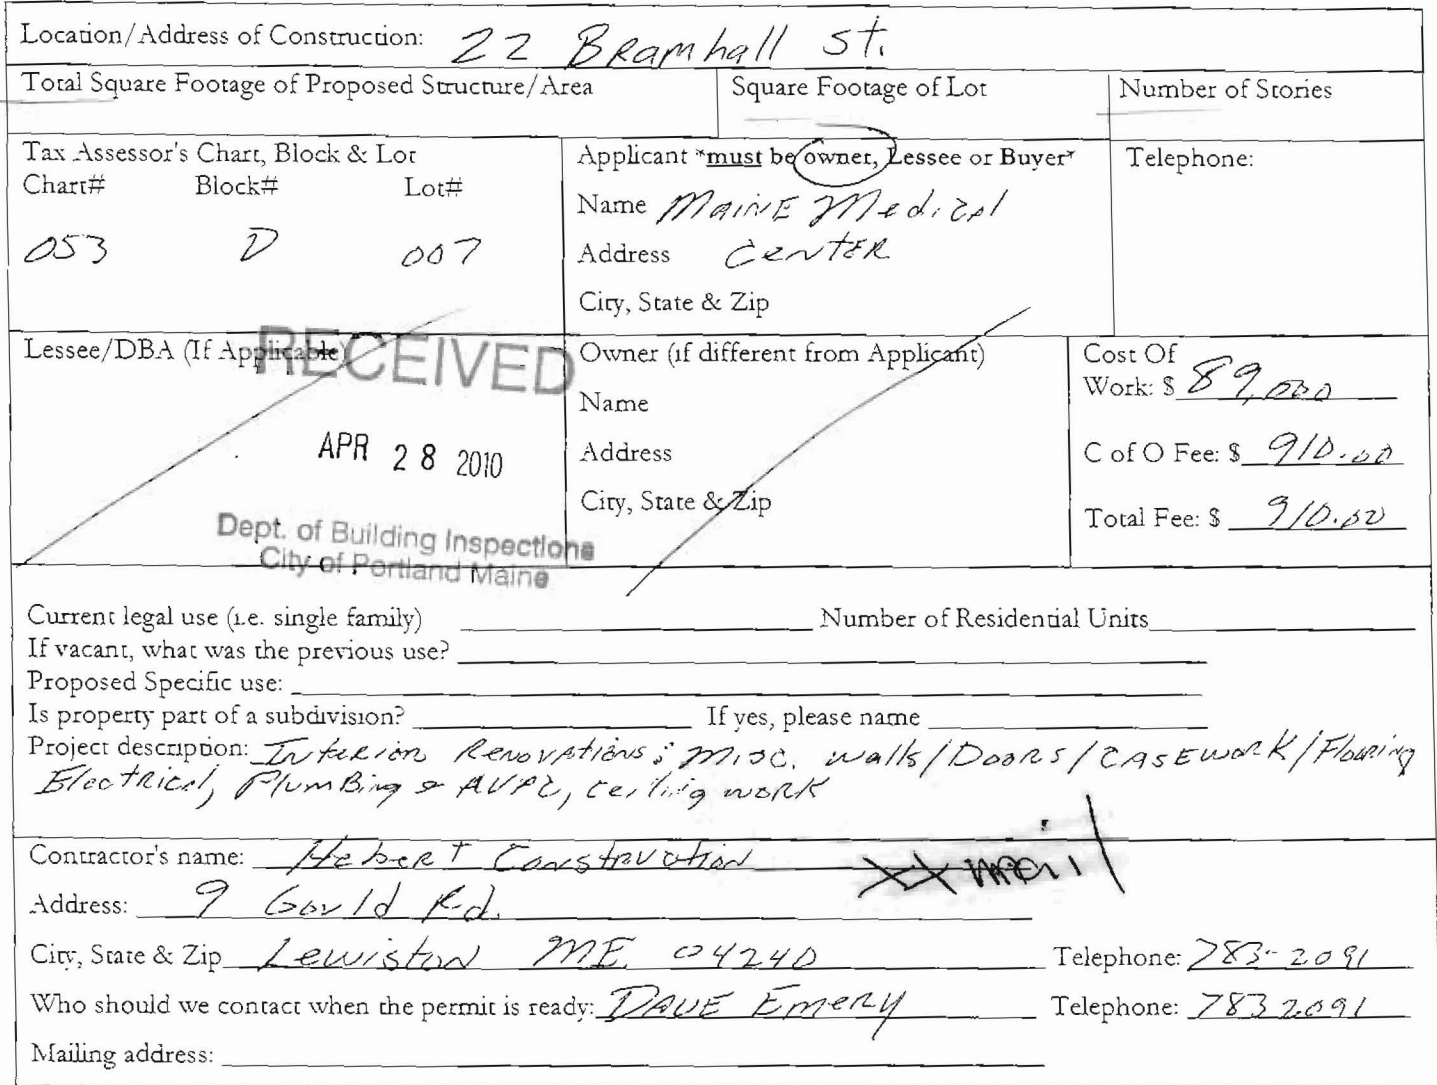 Location/Address of Construction: 22 Bramhall St.
Total Square Footage of Proposed Structure/Area
Square Footage of Lot
Number of Stories
Tax Assessor's Chart, Block & Lot
Chart# Block# Lot#
053 D 007
Applicant *must be owner, Lessee or Buyer*
Name Maine Medical
Address Center
City, State & Zip
Telephone:
Lessee/DBA (If Applicable)
RECEIVED
APR 28 2010
Dept. of Building Inspections
City of Portland Maine
Owner (if different from Applicant)
Name
Address
City, State & Zip
Cost Of
Work: $ 89,000
C of O Fee: $ 910.00
Total Fee: $ 910.00
Current legal use (i.e. single family) Number of Residential Units
If vacant, what was the previous use?
Proposed Specific use:
Is property part of a subdivision? If yes, please name
Project description: Interior Renovations; Misc. walls/Doors/Casework/Flooring
Electrical, Plumbing & AVAC, ceiling work
Contractor's name: Hebert Construction
Address: 9 Gould Rd.
City, State & Zip Lewiston ME. 04240 Telephone: 783-2091
Who should we contact when the permit is ready: Dave Emery Telephone: 783 2091
Mailing address: